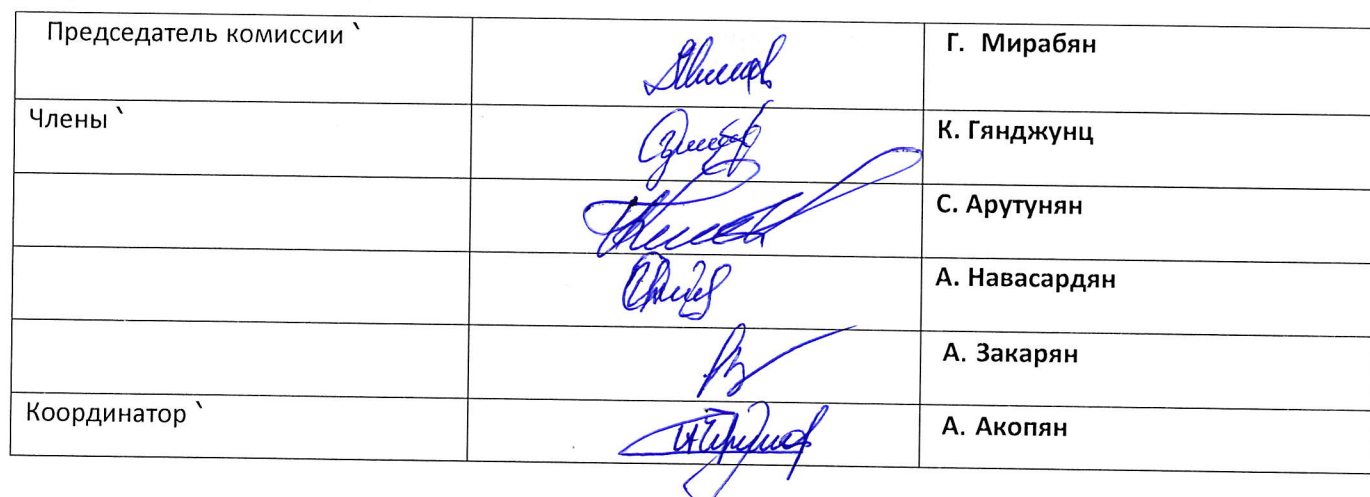 Председатель комиссии ՝ Г. Мирабян
Члены ՝ К. Гянджунц
С. Арутунян
А. Навасардян
А. Закарян
Координатор ՝ А. Акопян